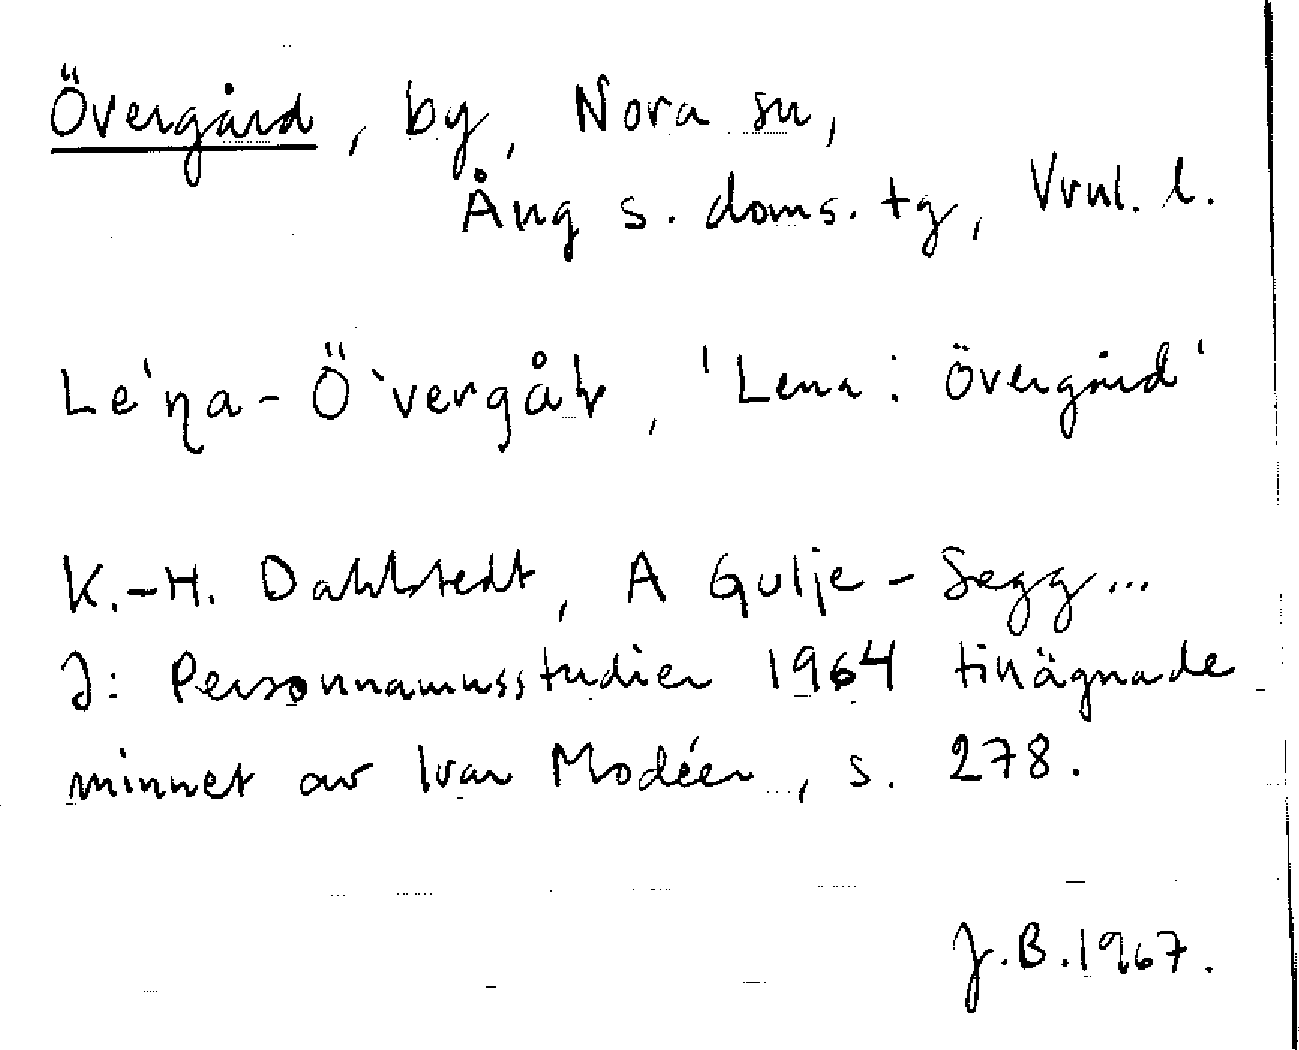 Övergård, by, Nora sn,
Ång s. doms. tg, Vrnl. l.
Le´ŋa-Ö`vergåɽ, 'Lena i Övergård'
K.-H. Dahlstedt, A Gulje-Segg...
I: Personnamnsstudier 1964 tillägnade
minnet av Ivar Modéer, s. 278.
J.B. 1967.